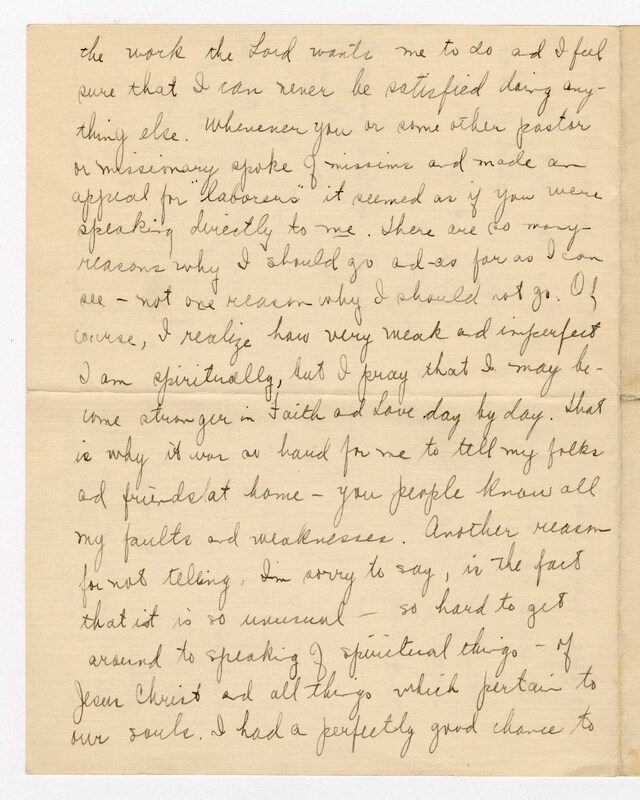 the work the Lord wants me to do ad I feel
sure that I can never be satisfied doing any-
thing else. Whenever you or some other pastor
or missionary spoke of missions and made an
appeal for "laborers" it seemed as if you were
speaking directly to me. There are so many
reasons why I should go ad as far as I can
see - not one reason why I should not go. Of
course, I realize how very weak ad imperfect
I am spiritually, but I pray that I may be-
come stronger in Faith ad Love day by day. That
is why it was so hard for me to tell my folks
ad friends at home - you people know all
my faults and weaknesses. Another reason
for not telling, I'm sorry to say, is the fact
that it is so unusual - so hard to get
around to speaking of spiritual things - of
Jesus Christ ad all things which pertain to
our souls. I had a perfectly good chance to